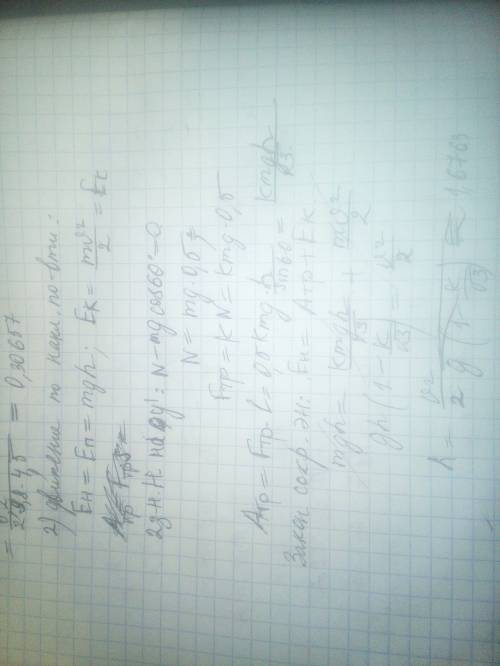 = v² / 2·9,8·4,5 = 0,30657
2) движение по накл. по-вти:
Eн = Eп = mgh; Eк = mv²/2 = Eк
2 з-н Н на оу: N - mg cos60° = 0
N = mg·0,5;
Fтр = kN = kmg·0,5
Aтр = Fтр·l = 0,5kmg·h/sin60 = kmgh/√3
Закон сохр. эн: Eн = Aтр + Eк
mgh = kmgh/√3 + mv²/2
gh(1 - k/√3) = v²/2
h = v² / 2g(1 - k/√3) = 1,6769